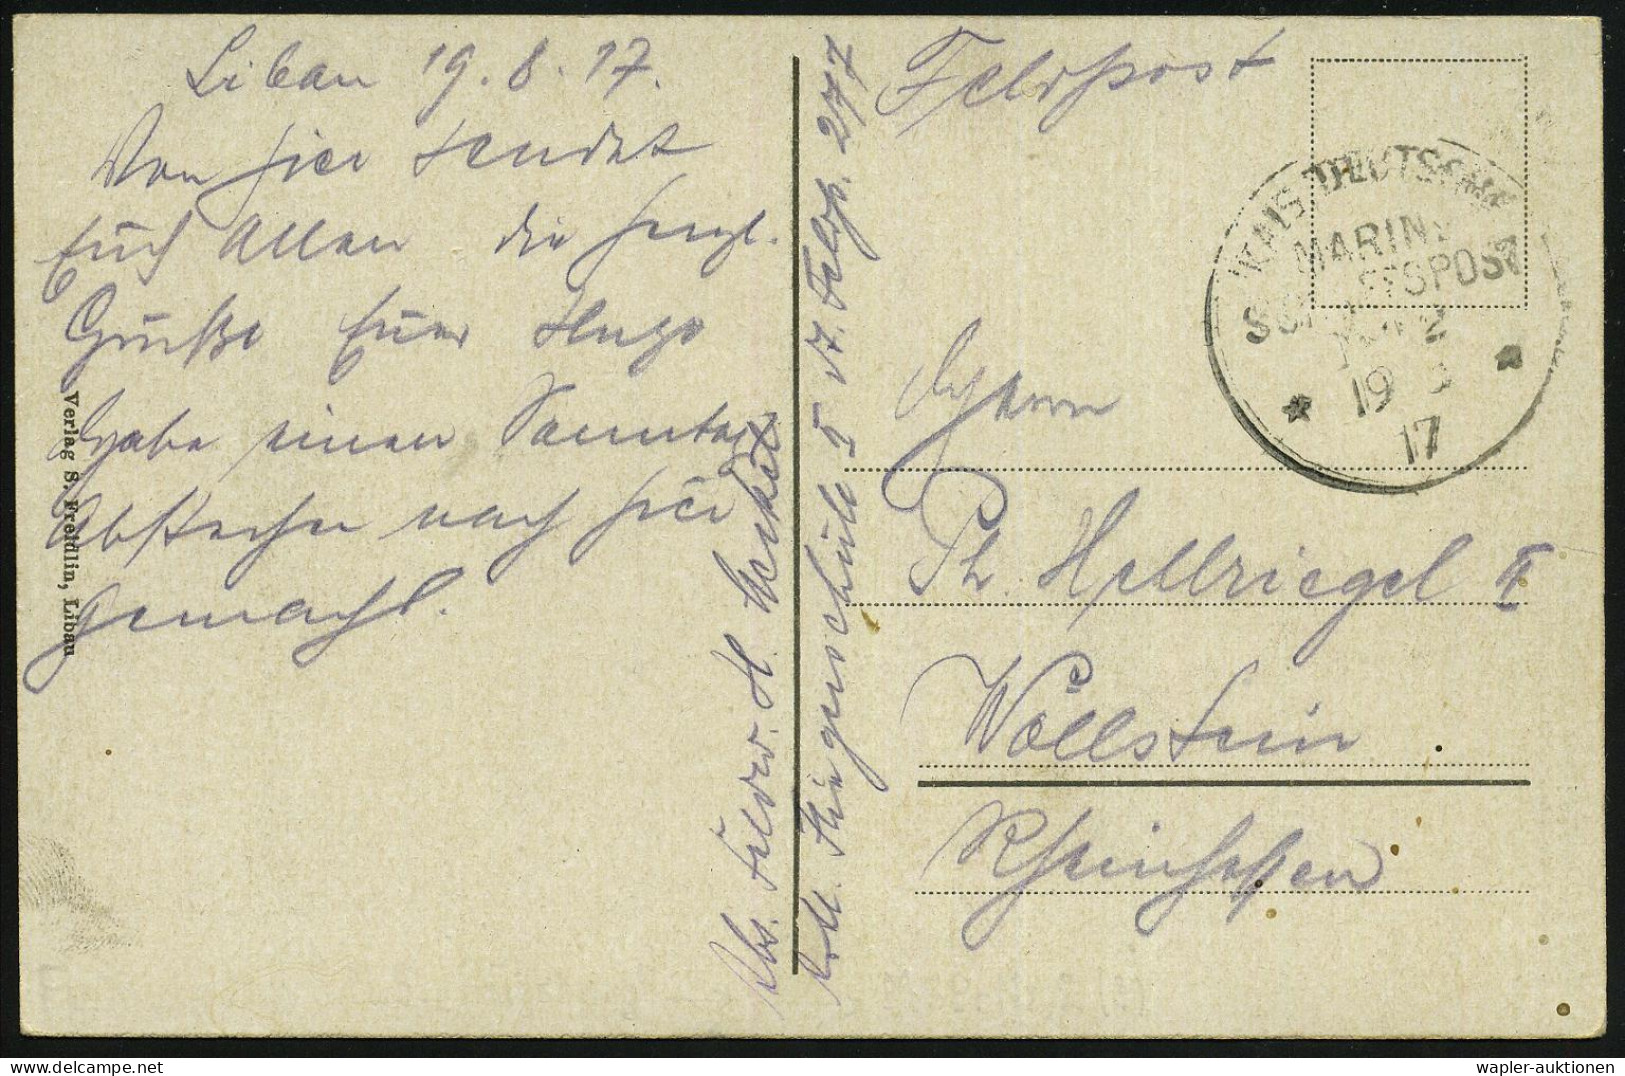 Libau 19.8.17.
Von hier sendet
Euch Allen die herzl.
Grüße Euer Hugo
Habe einen Sonntag
Abstecher nach hier
gemacht.
Verlag S. Freidlin, Libau
Abs. Feldw. H.
Fliegerschule I St. Feldp. 277
Feldpost
KAIS. DEUTSCHE
MARINE
SCHIFFSPOST
19 8
17
Herrn
Ph. Hellriegel II
Wöllstein
Rheinhessen
wapler-auktionen